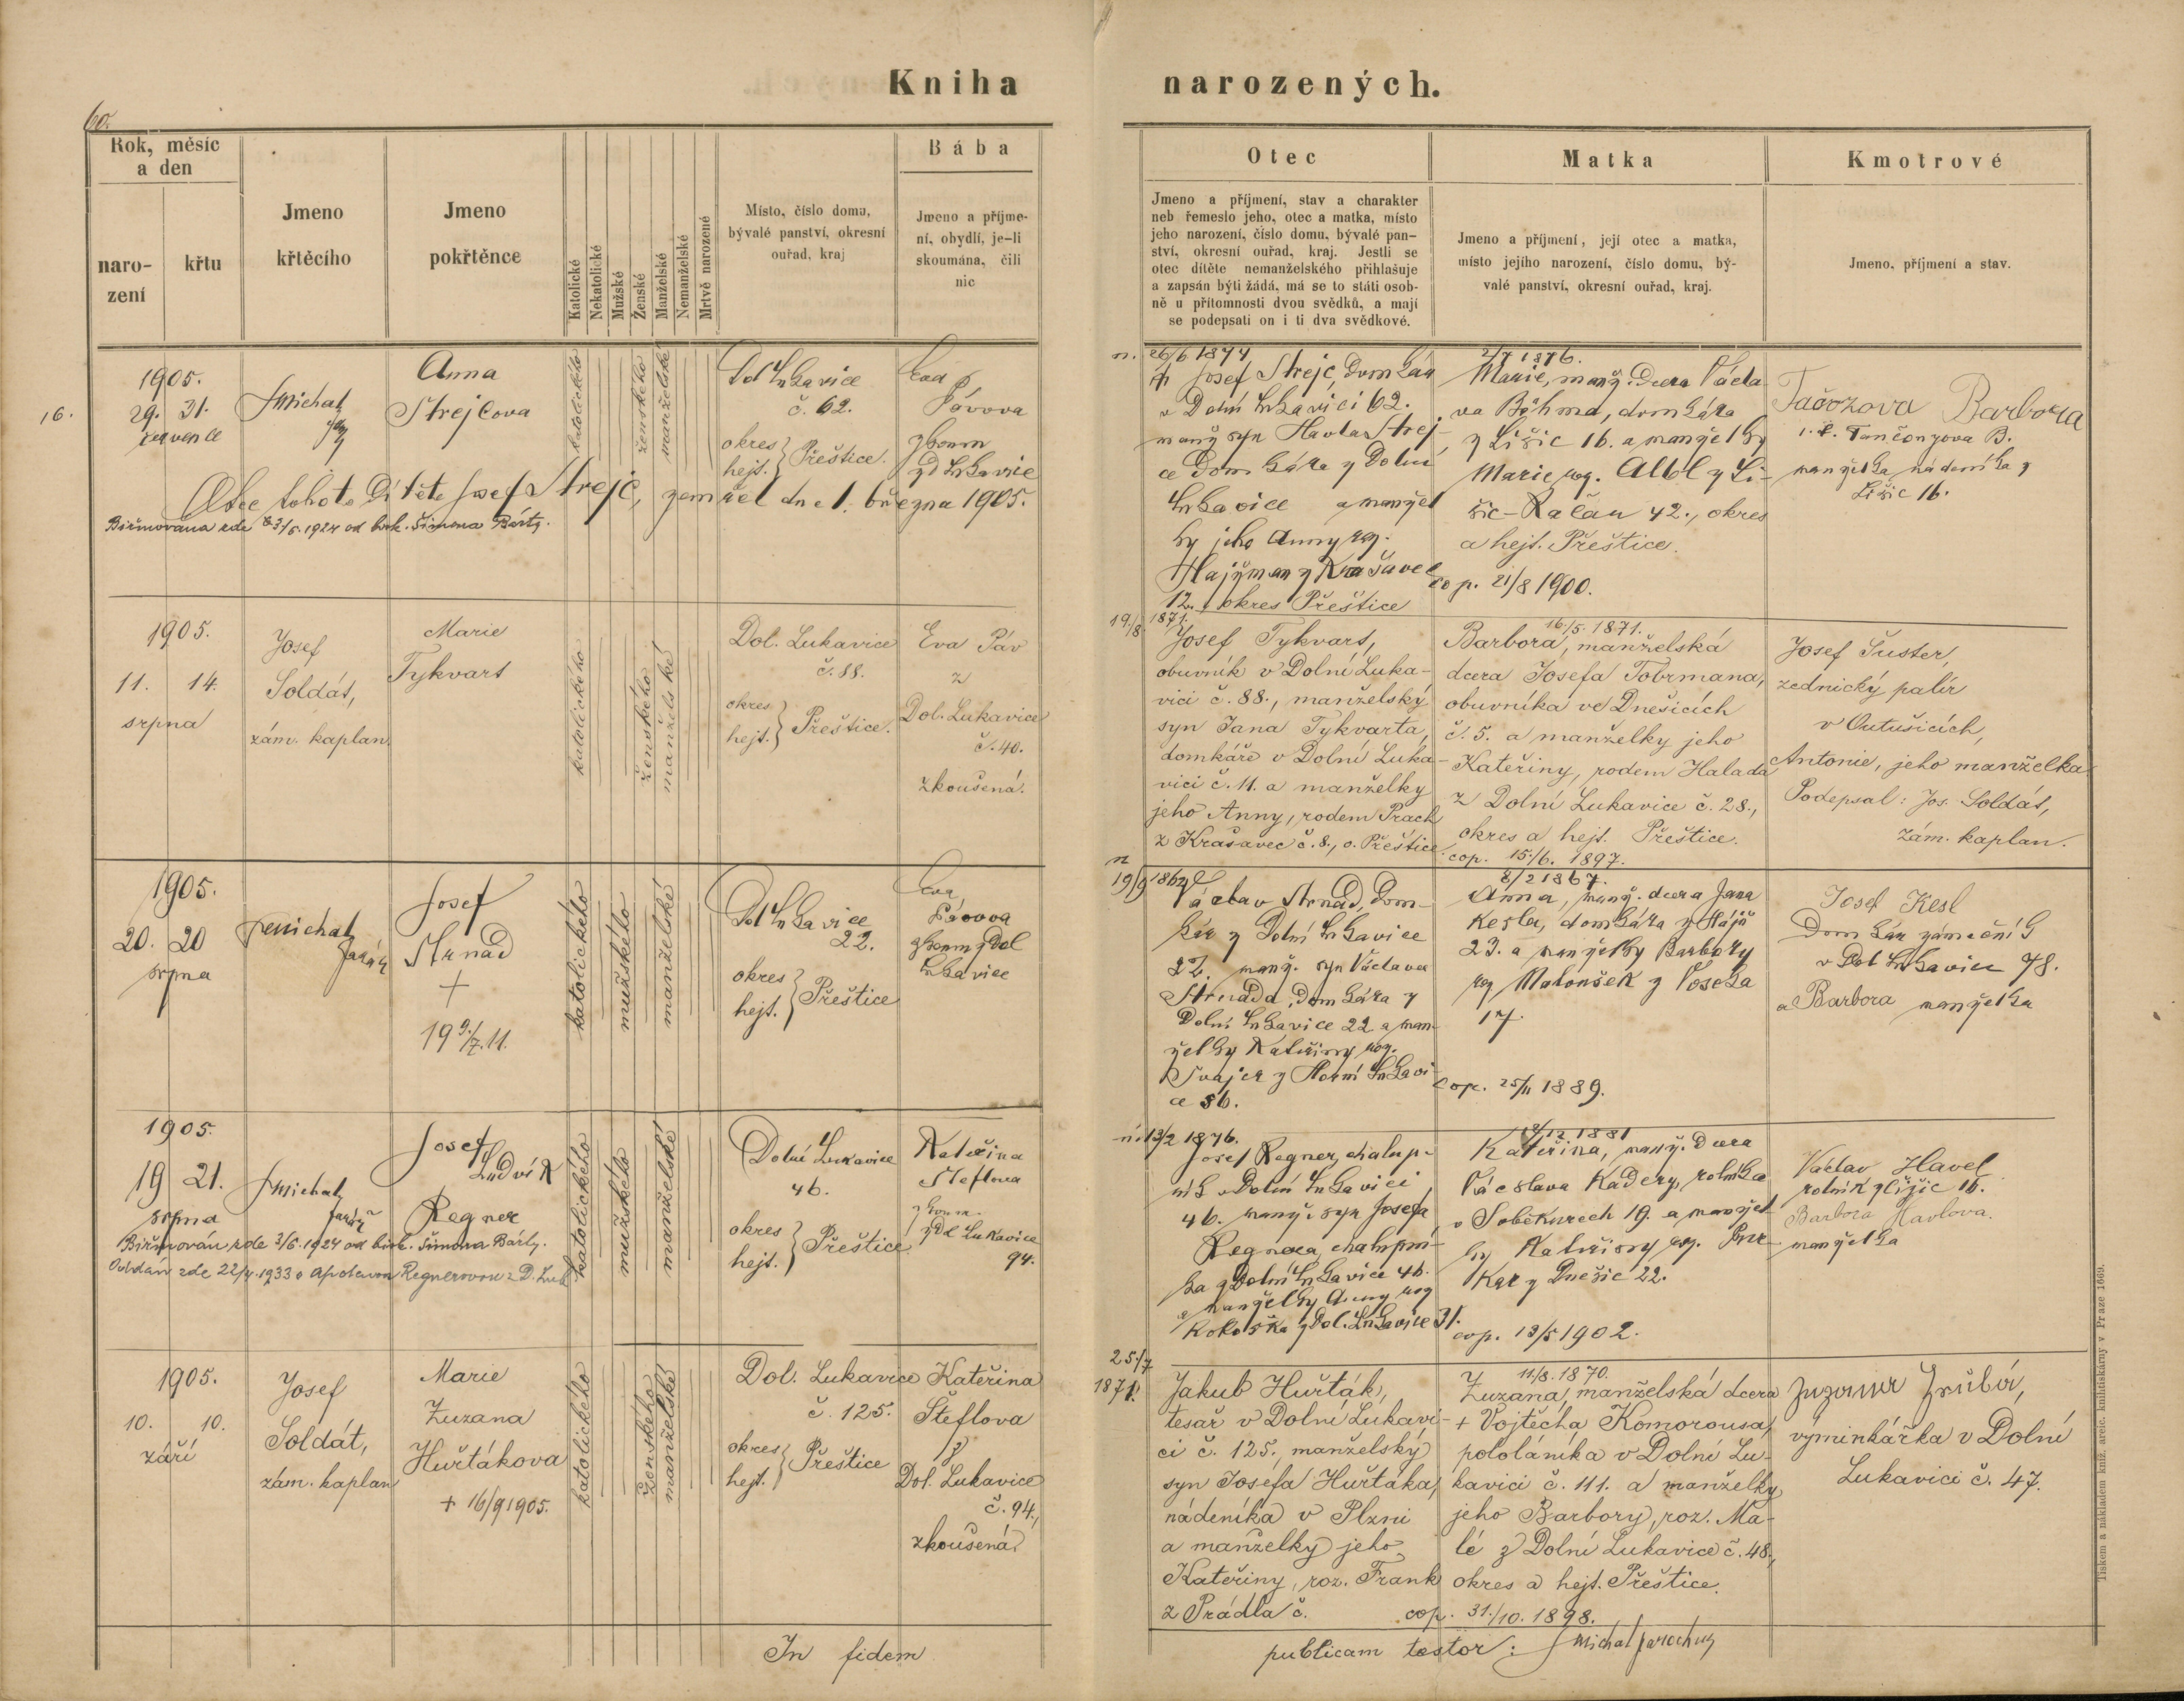 Kniha narozených.
60.
Rok, měsíc a den
naro-
zení
křtu
Jmeno
křtěcího
Jmeno
pokřtěnce
Katolické
Nekatolické
Mužské
Ženské
Manželské
Nemanželské
Mrtvě narozené
Místo, číslo domu,
bývalé panství, okresní
ouřad, kraj
Bába
Jmeno a příjme-
ní, obydlí, je-li
skoumána, čili
nic
Otec
Jmeno a příjmení, stav a charakter
neb řemeslo jeho, otec a matka, místo
jeho narození, číslo domu, bývalé pan-
ství, okresní ouřad, kraj. Jestli se
otec dítěte nemanželského přihlašuje
a zapsán býti žádá, má se to státi osob-
ně u přítomnosti dvou svědků, a mají
se podepsati on i ti dva svědkové.
Matka
Jmeno a příjmení, její otec a matka,
místo jejího narození, číslo domu, bý-
valé panství, okresní ouřad, kraj.
Kmotrové
Jmeno, příjmení a stav.
16.
1905.
29. 31.
července
Michal
Anna
Strejcova
katolického
ženského
manželské
Dol Lukavice
č. 62.
okres
hejt. } Přeštice.
Eva
Pávova
zkoum
z D Lukavice
Otec tohoto dítěte Josef Strejc, zemřel dne 1. března 1905.
Biřmována zde 3/6. 1924 od bisk. Šimona Bárty.
n. 26/6 1874
† Josef Strejc, domkář
v Dolní Lukavici 62.
manž syn Havla Strej-
ce domkáře z Dolní
Lukavice a manžel
ky jeho Anny roz.
z Krašavec
12. okres Přeštice
2/7 1876.
Marie, manž. dcera Václa
va Böhma, domkáře
z Lišic 16. a manželky
Marie roz. Altbl z Li-
šic-Račan 42., okres
a hejt. Přeštice.
cop. 21/8 1900.
Barbora
manželka nádeníka z
Lišic 16.
1905.
11. 14.
srpna
Josef
Soldát,
zám. kaplan.
Marie
Tykvart
katolického
ženského
manželské
Dol. Lukavice
č. 88.
okres
hejt. } Přeštice.
Eva Páv
z
Dol. Lukavice
č. 40.
zkoušená.
19/8. 1871.
Josef Tykvart,
obuvník v Dolní Luka-
vici č. 88., manželský
syn Jana Tykvarta,
domkáře v Dolní Luka-
vici č. 11. a manželky
jeho Anny, rodem Prach
z Krašavec č. 8., o. Přeštice.
16/5. 1871.
Barbora, manželská
dcera Josefa Tobrmana,
obuvníka ve Dnešicích
č. 5. a manželky jeho
Kateřiny, rodem Halada
z Dolní Lukavice č. 28.,
okres a hejt. Přeštice.
cop. 15/6. 1897.
Josef Šuster,
zednický palír
v Outušicích,
Antonie, jeho manželka
Podepsal: Jos. Soldát,
zám. kaplan.
1905.
20. 20
srpna
Michal
farář
Josef
Strnad
+
19 9/7. 11.
katolického
mužského
manželské
Dol Lukavice
22.
okres
hejt. } Přeštice
Eva
Pávova
zkoum z Dol
Lukavice
n
Václav Strnad, dom-
kář z Dolní Lukavice
22. manž. syn Václava
Strnada, domkáře z
Dolní Lukavice 22 a man-
želky Kateřiny roz.
Švajcr z Horní Lukavi
ce 56.
8/2 1867.
Anna, manž. dcera Jana
Kesla, domkáře z Hájů
23. a manželky Barbory
roz Matoušek z Voseka
17.
cop. 25/11 1889.
Josef Kesl
Domkář zámečník
v Dol Lukavice 78.
a Barbora manželka
1905.
19 21.
srpna
Michal
farář
Josef
Ludvík
Regner
katolického
mužského
manželské
Dolní Lukavice
46.
okres
hejt. } Přeštice
Kateřina
Šteflova
zkoum.
z Dol Lukavice
94.
Biřmován zde 3/6. 1924 od bisk. Šimona Bárty.
Oddán zde 22/4. 1933 s Regnerovou z D. Luk
n. 13/2 1876.
Josef Regner, chalup-
ník v Dolní Lukavici
46. manž. syn Josefa
Regnera, chalupní-
ka z Dolní Lukavice 46.
a manželky Anny roz
Kokoška z Dol. Lukavice 31.
18/12 1881
Kateřina, manž. dcera
Václava Kadery, rolníka
v Soběkurech 19. a manžel
ky Kateřiny roz.
z Dnešic 22.
cop. 13/5 1902.
Václav Havel
rolník z Lišic 16.
Barbora Havlova.
manželka
1905.
10. 10.
září
Josef
Soldát,
zám. kaplan
Marie
Zuzana
Huřtákova
+ 16/9 1905.
katolického
ženského
manželské
Dol. Lukavice
č. 125.
okres
hejt. } Přeštice
Kateřina
Šteflova
z
Dol. Lukavice
č. 94.,
zkoušená.
25/7
1871.
Jakub Huřták,
tesař v Dolní Lukavi-
ci č. 125., manželský
syn Josefa Huřtáka,
nádeníka v Plzni
a manželky jeho
Kateřiny, roz. Frank
z Prádla č.
11/8. 1870.
Zuzana, manželská dcera
+ Vojtěcha Komorousa,
pololáníka v Dolní Lu-
kavici č. 111. a manželky
jeho Barbory, roz. Ma-
lé z Dolní Lukavice č. 48.,
okres a hejt. Přeštice.
cop. 31./10. 1898.
Zuzana Zrůbá,
výminkářka v Dolní
Lukavici č. 47.
In fidem publicam testor: Michal parochus
Tiskem a nákladem kníž. arcib. knihtiskárny v Praze 1669.